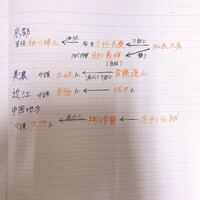 京都
管領 細川晴元 ← 家臣 三好長慶 ← 松永久秀
将軍 足利義輝
(自殺)
美濃 守護 土岐氏 ← 斎藤道山
近江 守護 京極氏 ← 浅井氏
中国地方
守護 大内氏 ← 陶晴賢 ← 毛利元就